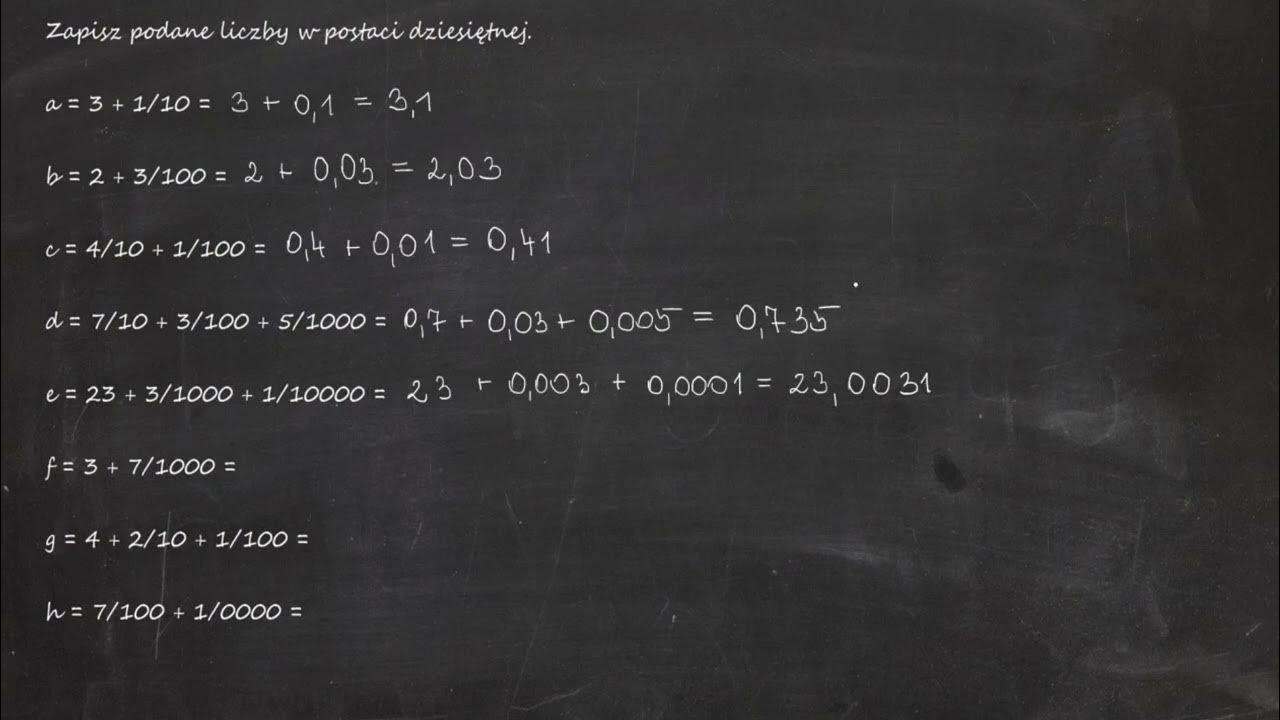 Zapisz podane liczby w postaci dziesiętnej.
a = 3 + 1/10 = 3 + 0,1 = 3,1
b = 2 + 3/100 = 2 + 0,03 = 2,03
c = 4/10 + 1/100 = 0,4 + 0,01 = 0,41
d = 7/10 + 3/100 + 5/1000 = 0,7 + 0,03 + 0,005 = 0,735
e = 23 + 3/1000 + 1/10000 = 23 + 0,003 + 0,0001 = 23,0031
f = 3 + 7/1000 =
g = 4 + 2/10 + 1/100 =
h = 7/100 + 1/0000 =